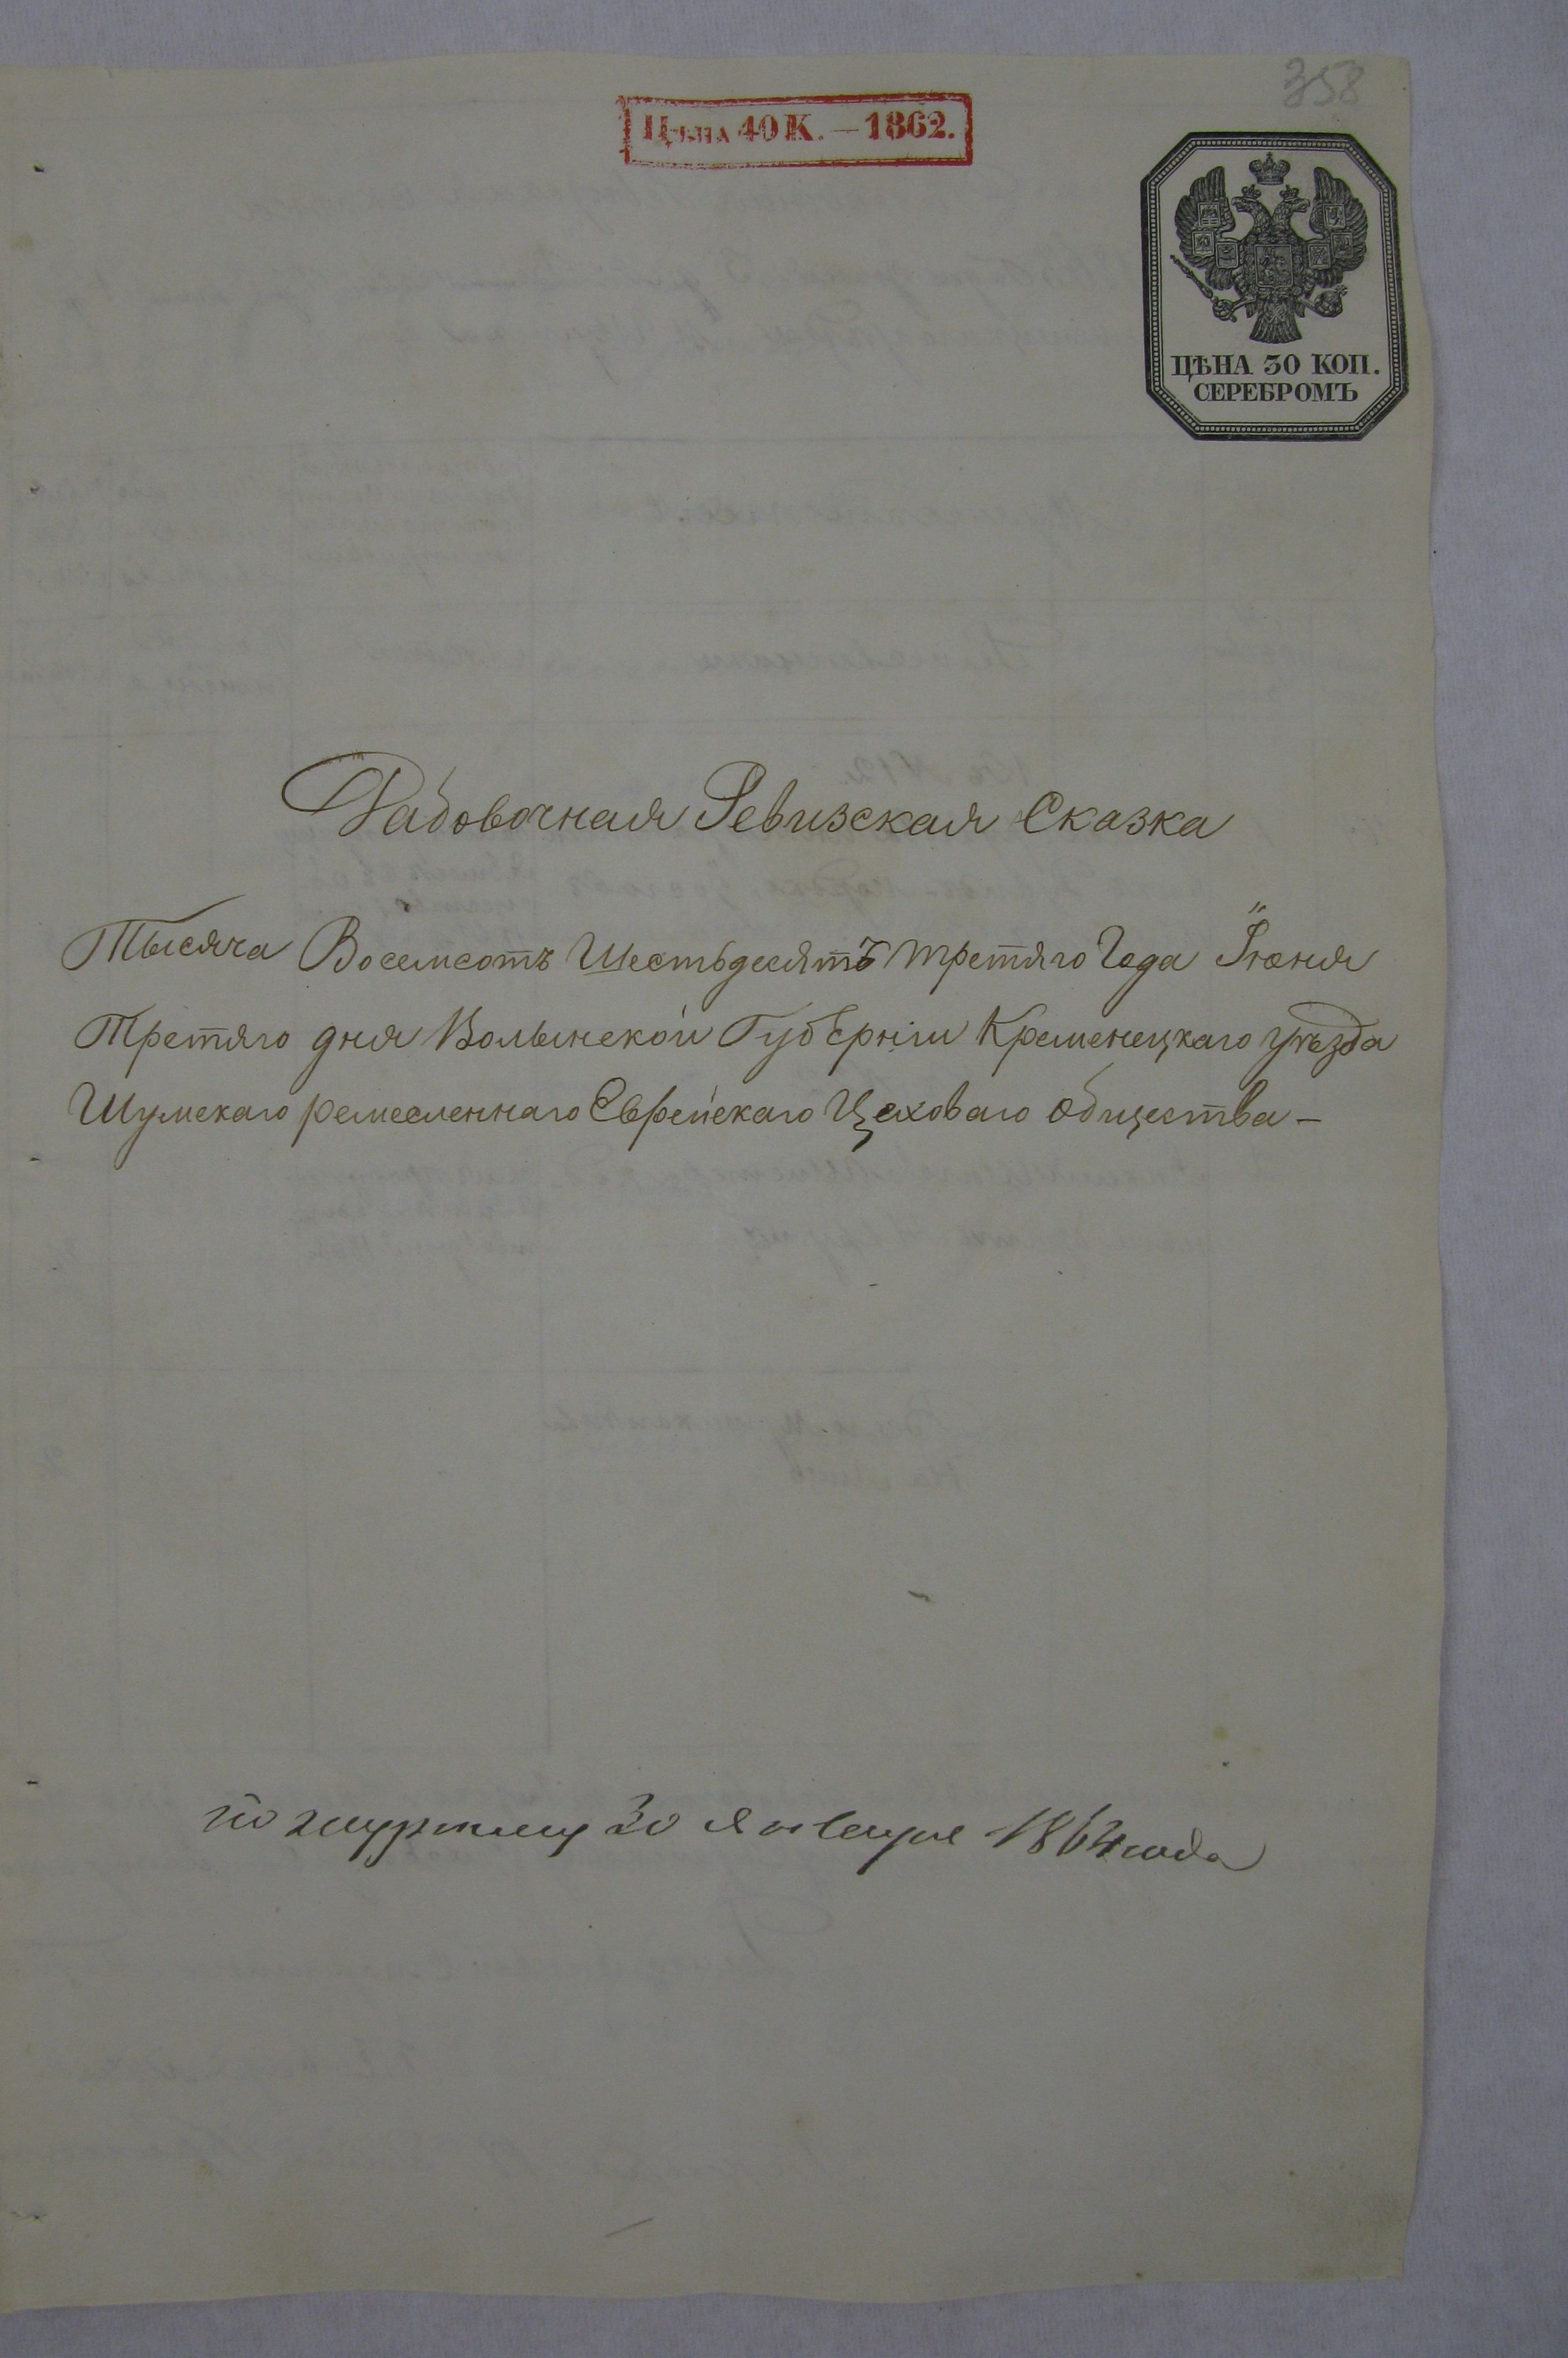 358
Цѣна 40 К. — 1862.
ЦѢНА 30 КОП.
СЕРЕБРОМЪ
Ревизская Сказка
Тысяча Восемсотъ Шестьдесятъ третяго Года Іюня
Третяго дня Волынской Губерніи Кременецкаго уѣзда
Шумскаго ремесленнаго Еврейскаго Цеховаго общества –
по журналу 30 января 1864 года